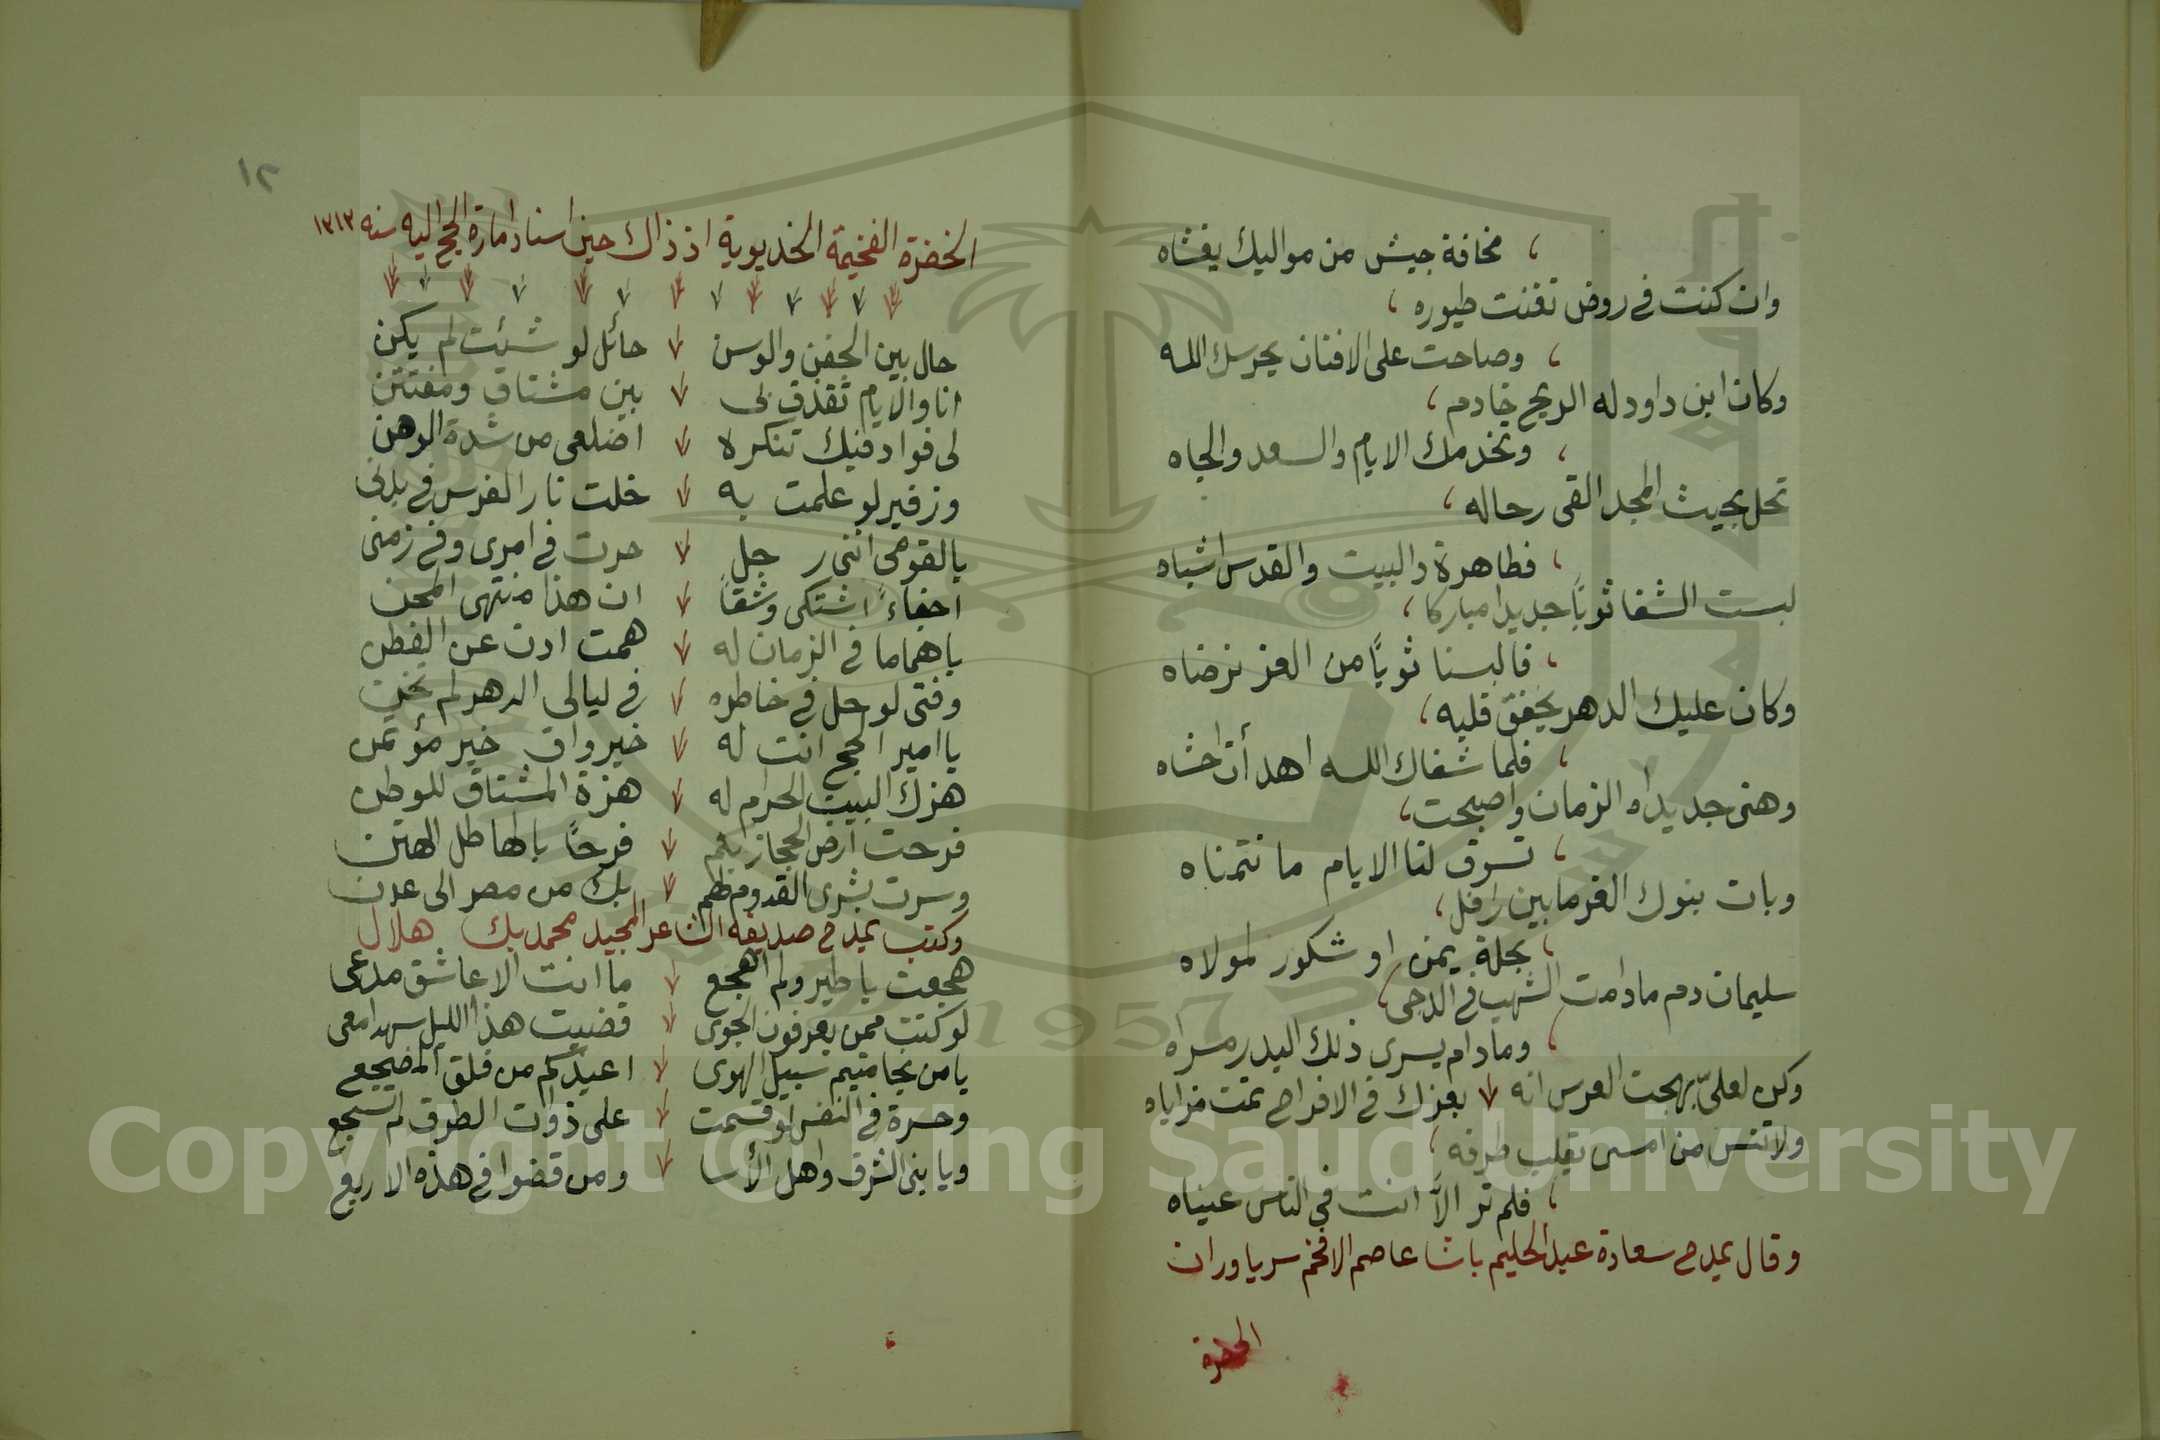 مخافة جيش من مواليك يغشاه
وان كنت في روض تغنت طيوره
وصاحت على الافنان يحرسك الله
وكان ابن داود له الريح خادم
وتخدمك الايام والسعد والجاه
تحل بحيث المجد القى رحاله
فطاهرة والبيت والقدس اشباه
لبست الشفا ثوباً جديدا مباركا
فالبسنا ثوباً من العز نرضاه
وكان عليك الدهر يخفق قلبه
فلما شفاك الله اهدأت احشاه
وهنى جديداه الزمان واصبحت
تسوق لنا الايام ما نتمناه
وبات بنوك الغر ما بين رافل
بحلة يمن او شكور لمولاه
سليمان دم ما دامت الشهب في الدجى
وما دام يسرى ذلك البدر مسراه
وكن لعليّ بهجت العرس انه بعزك في الافراح تمت مزاياه
ولا تنس من امسى يقلب طرفه
فلم تر الاّ انت في الناس عيناه
وقال يمدح سعادة عبد الحليم باشا عاصم الافخم سرياوران
الحضرة
١٢
الحضرة الفخيمة الخديوية اذ ذاك حين اسناد امارة الحج اليه سنه ١٣١٣
حال بين الجفن والوسن حائل لو شئت لم يكن
انا والايام تقذف بى بين مشتاق ومفتتن
لى فواد فيك تنكره اضلعى من شدة الوهن
وزفير لو علمت به خلت نار الفرس في بدنى
يالقومى اننى رجل حرت في امرى وفي زمنى
أجفاءً اشتكى وشقاً ان هذا منتهى المحن
ياهماما في الزمان له همت ادت عن الفطن
وفتى لو حل في خاطره في ليالى الدهر لم يخن
يا امير الحج انت له خير واق خير مؤتمن
هزك البيت الحرام له هزة المشتاق للوطن
فرحت ارض الحجاز بكم فرحاً بالهاطل الهتن
وسرت بشرى القدوم لهم بك من مصر الى عدن
وكتب يمدح صديقه الشاعر المجيد محمد بك هلال
هجعت ياطير ولم اهجع ما انت الا عاشق مدعى
لو كنت ممن يعرفون الجوى قضيت هذا الليل سهدا معى
يا من تحاميتم سبيل الهوى اعيذكم من قلق المضجع
وحسرة في النفس لو قسمت على ذوات الطوق لم تسجع
ويا بنى الشوق واهل الأسا ومن قضوا في هذه الاربع
1957
Copyright © King Saud University